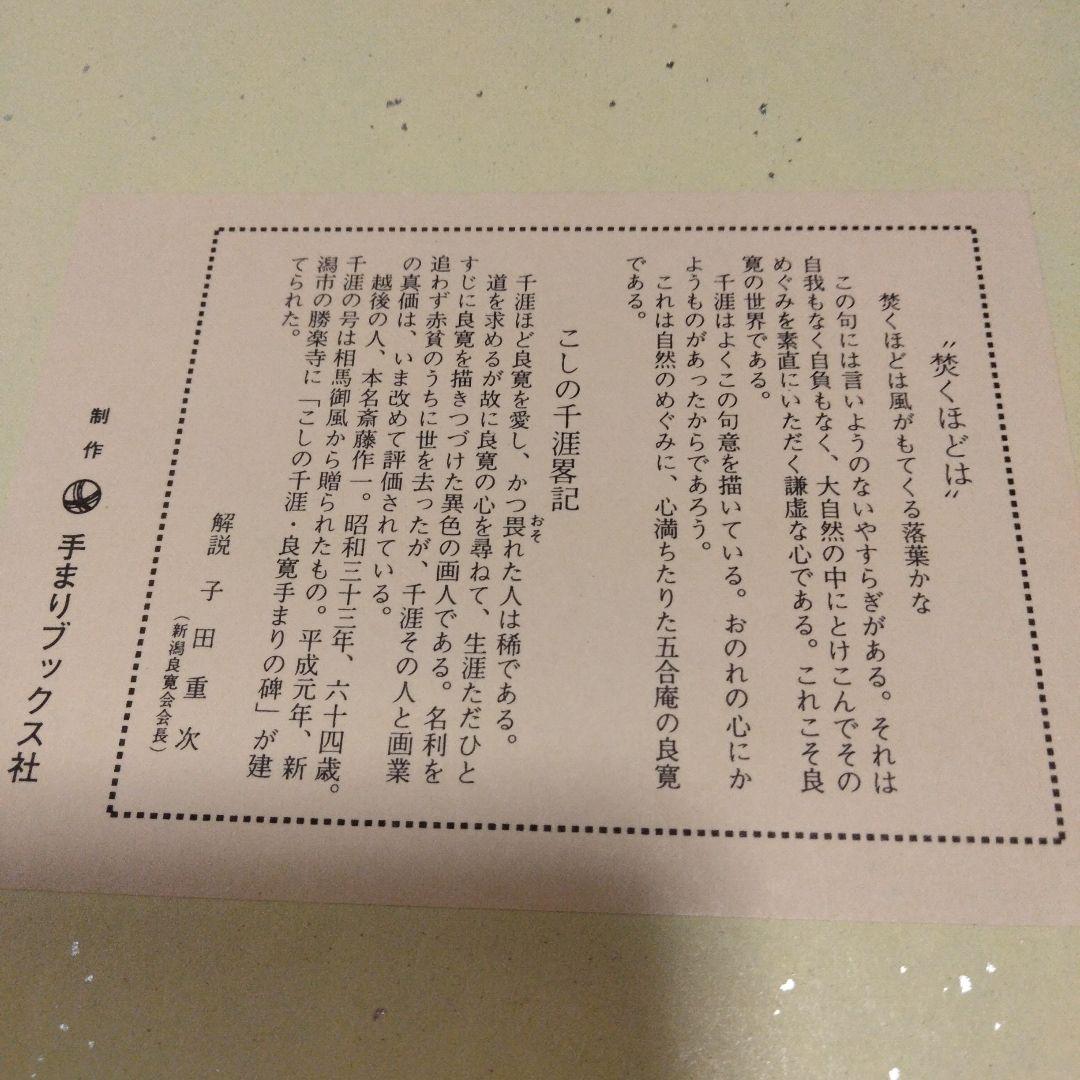 〝焚くほどは〟
焚くほどは風がもてくる落葉かな
この句には言いようのないやすらぎがある。それは
自我もなく自負もなく、大自然の中にとけこんでその
めぐみを素直にいただく謙虚な心である。これこそ良
寛の世界である。
千涯はよくこの句意を描いている。おのれの心にか
ようものがあったからであろう。
これは自然のめぐみに、心満ちたりた五合庵の良寛
である。
こしの千涯畧記
千涯ほど良寛を愛し、かつ畏れた人は稀である。
おそ
道を求めるが故に良寛の心を尋ねて、生涯ただひと
すじに良寛を描きつづけた異色の画人である。名利を
追わず赤貧のうちに世を去ったが、千涯その人と画業
の真価は、いま改めて評価されている。
越後の人、本名斎藤作一。昭和三十三年、六十四歳。
千涯の号は相馬御風から贈られたもの。平成元年、新
潟市の勝楽寺に「こしの千涯・良寛手まりの碑」が建
てられた。
解説 子田重次
(新潟良寛会会長)
制作 手まりブックス社